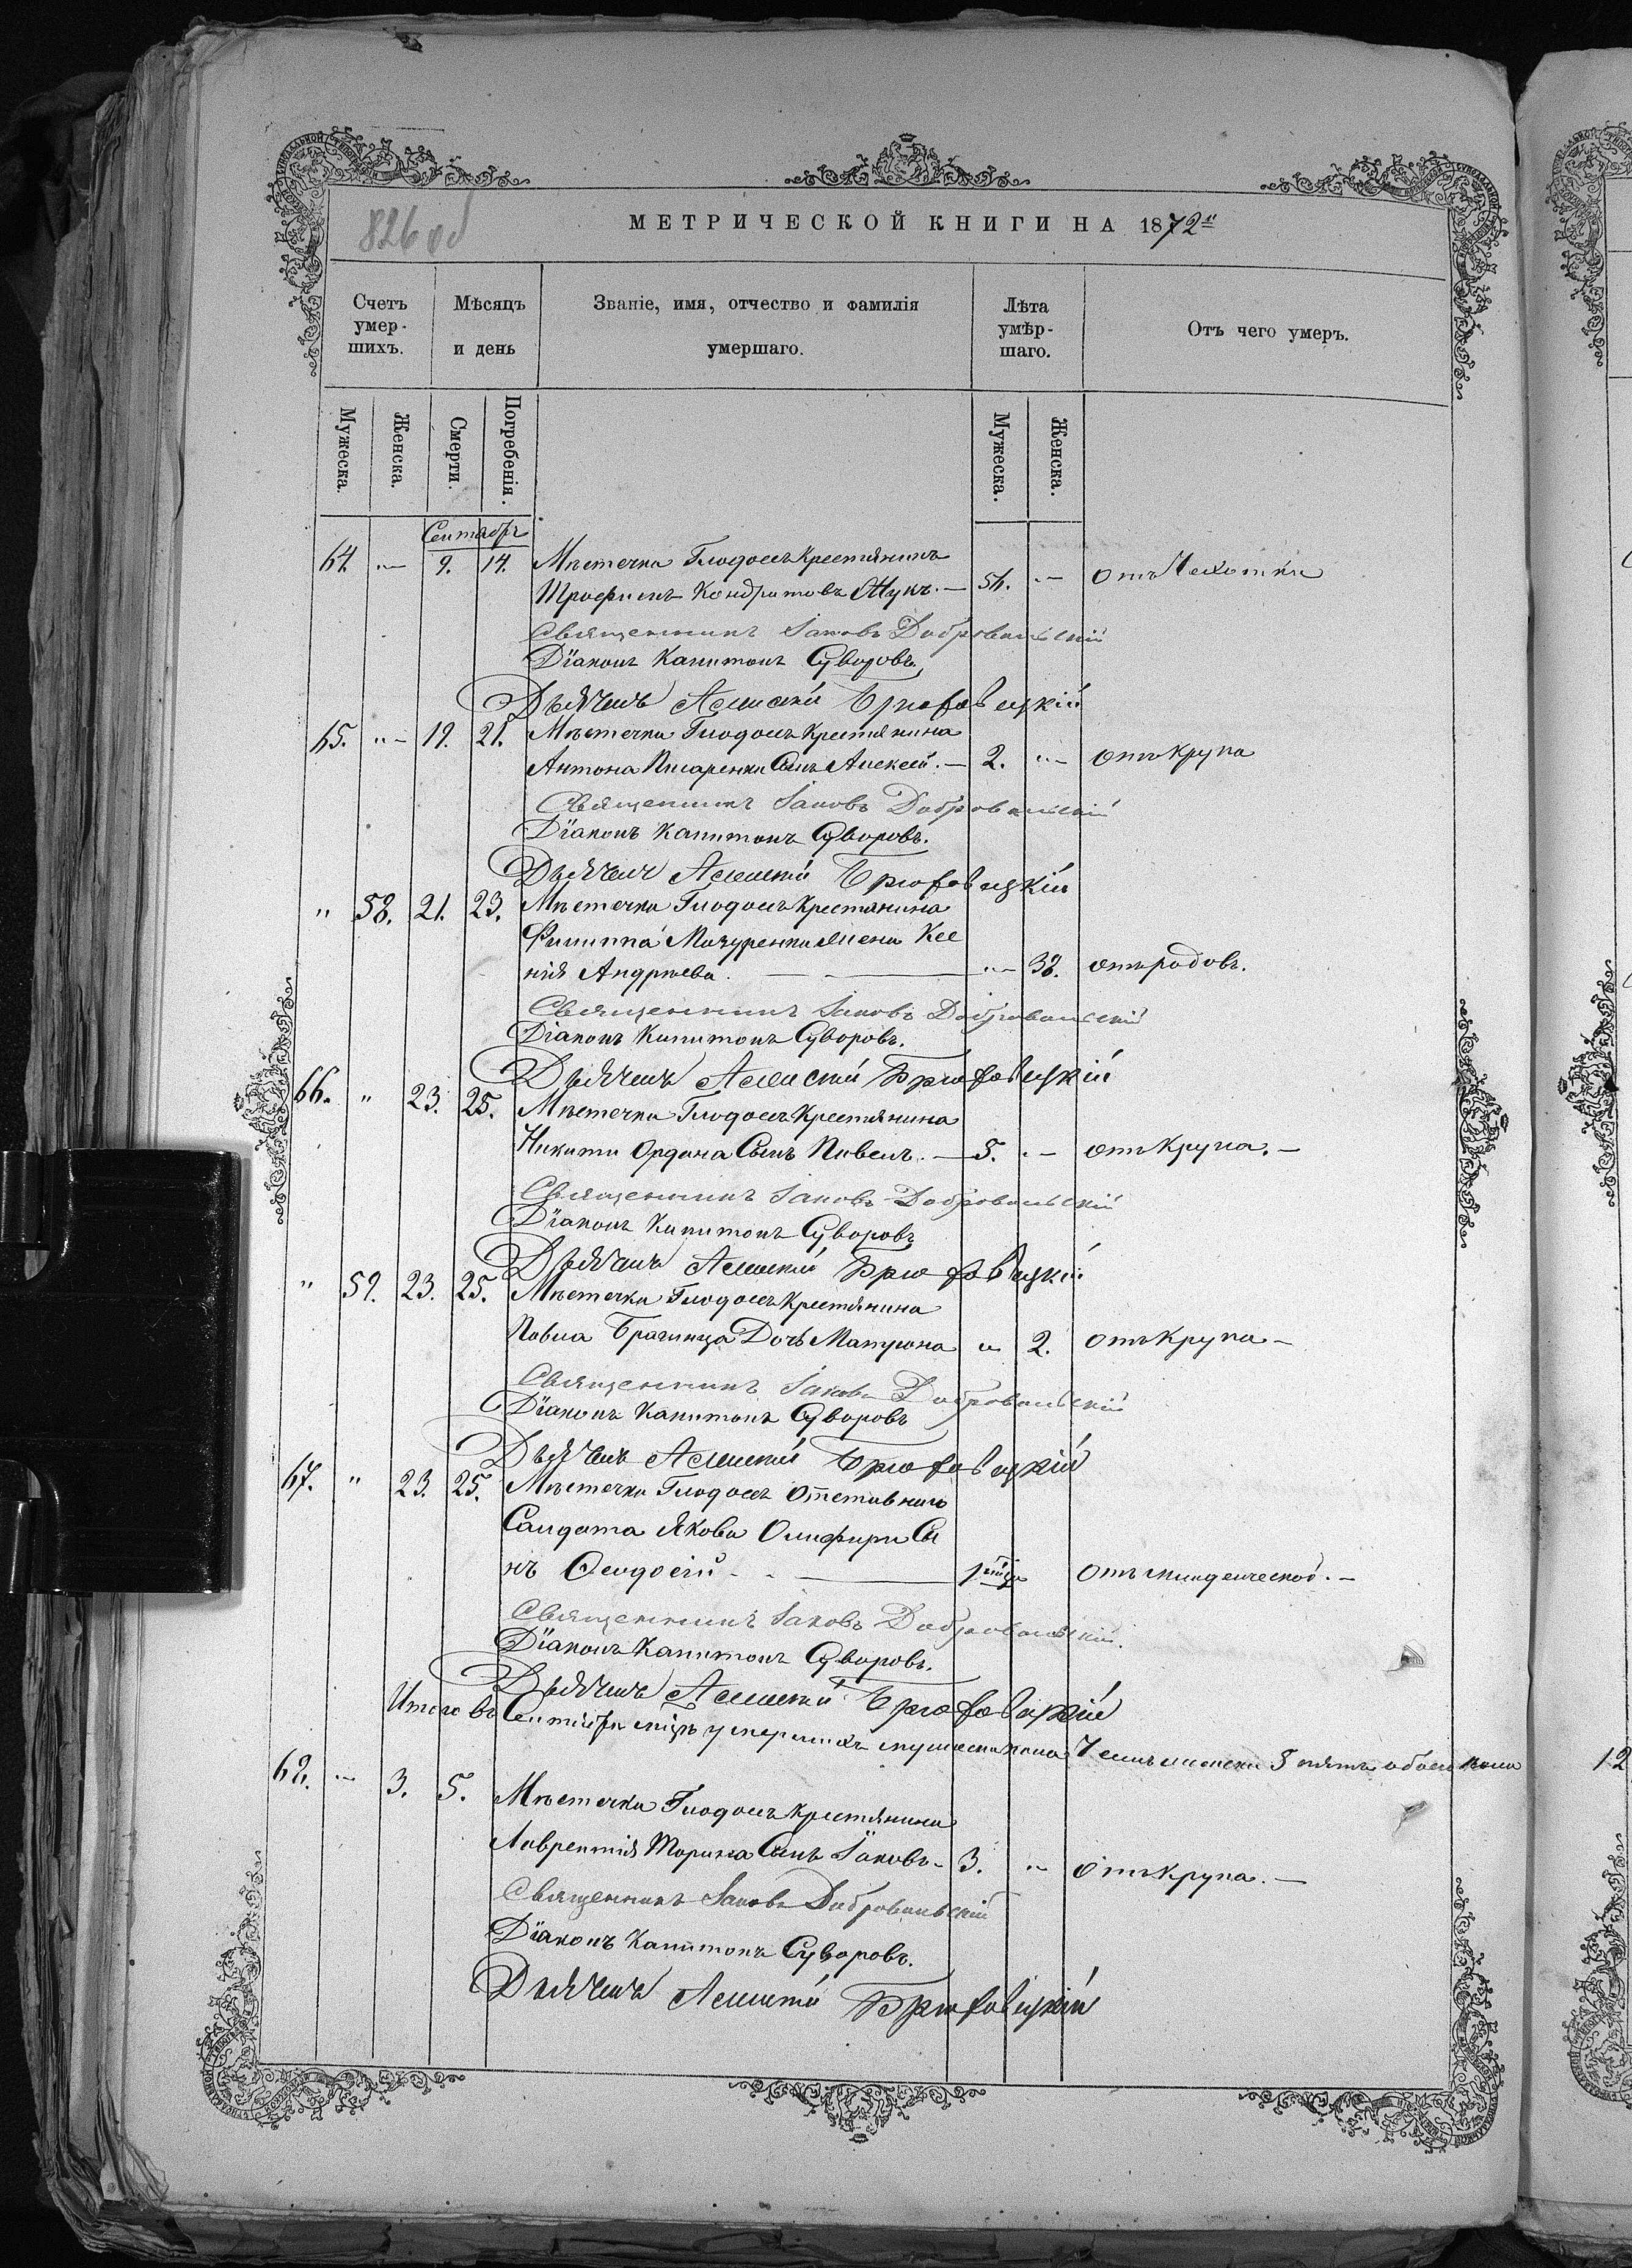 826 об
МЕТРИЧЕСКОЙ КНИГИ НА 1872
Счетъ умер-шихъ.
Мѣсяцъ и день
Званіе, имя, отчество и фамилія умершаго.
Лѣта умѣр-шаго.
Отъ чего умеръ.
Мужеска.
Женска.
Смерти.
Погребенія.
Мужеска.
Женска.
Сентябрь
64. 9. 14. Мѣстечка Глодосъ Крестянинъ
Трофимъ Кондратовъ Жукъ. — 54. Отъ Чахотки
Священникъ Іаковъ Добровольскій
Діаконъ Капитонъ Суворовъ.
Дьячекъ Алексѣй Брюховецкій
65. 19. 21. Мѣстечка Глодосъ Крестянина
Антона Писаренка Сынъ Алексей. — 2. Отъ Крупа
Священникъ Іаковъ Добровольскій
Діаконъ Капитонъ Суворовъ.
Дьячекъ Алексѣй Брюховецкій
" 58. 21. 23. Мѣстечка Глодосъ Крестянина
Филиппа Мазуренка жена Ксе
нія Андрѣева. — 38. отъ родовъ.
Священникъ Іаковъ Добровольскій
Діаконъ Капитонъ Суворовъ.
Дьячекъ Алексѣй Брюховецкій
66. " 23. 25. Мѣстечка Глодосъ Крестянина
Никиты Ордана Сынъ Павелъ. — 5. отъ Крупа. —
Священникъ Іаковъ Добровольскій
Діаконъ Капитонъ Суворовъ
Дьячекъ Алексѣй Брюховецкій
" 59. 23. 25. Мѣстечка Глодосъ Крестянина
Павла Брагинца Дочь Матрона " 2. отъ Крупа —
Священникъ Іаковъ Добровольскій
Діаконъ Капитонъ Суворовъ
Дьячекъ Алексѣй Брюховецкій
67. " 23. 25. Мѣстечка Глодосъ Отставнаго
Салдата Якова Олифира Сы
нъ Феодосій — 1 Отъ младенческой. —
Священникъ Іаковъ Добровольскій.
Діаконъ Капитонъ Суворовъ.
Дьячекъ Алексѣй Брюховецкій
Итого въ Сентябрѣ умершихъ мужеска пола 7 женска 5 пять обоего пола
68. 3. 5. Мѣстечка Глодосъ Крестянина
Лаврентія Сынъ Іаковъ — 3. " Отъ Крупа. —
Священникъ Іаковъ Добровольскій
Діаконъ Капитонъ Суворовъ.
Дьячекъ Алексѣй Брюховецкій
12